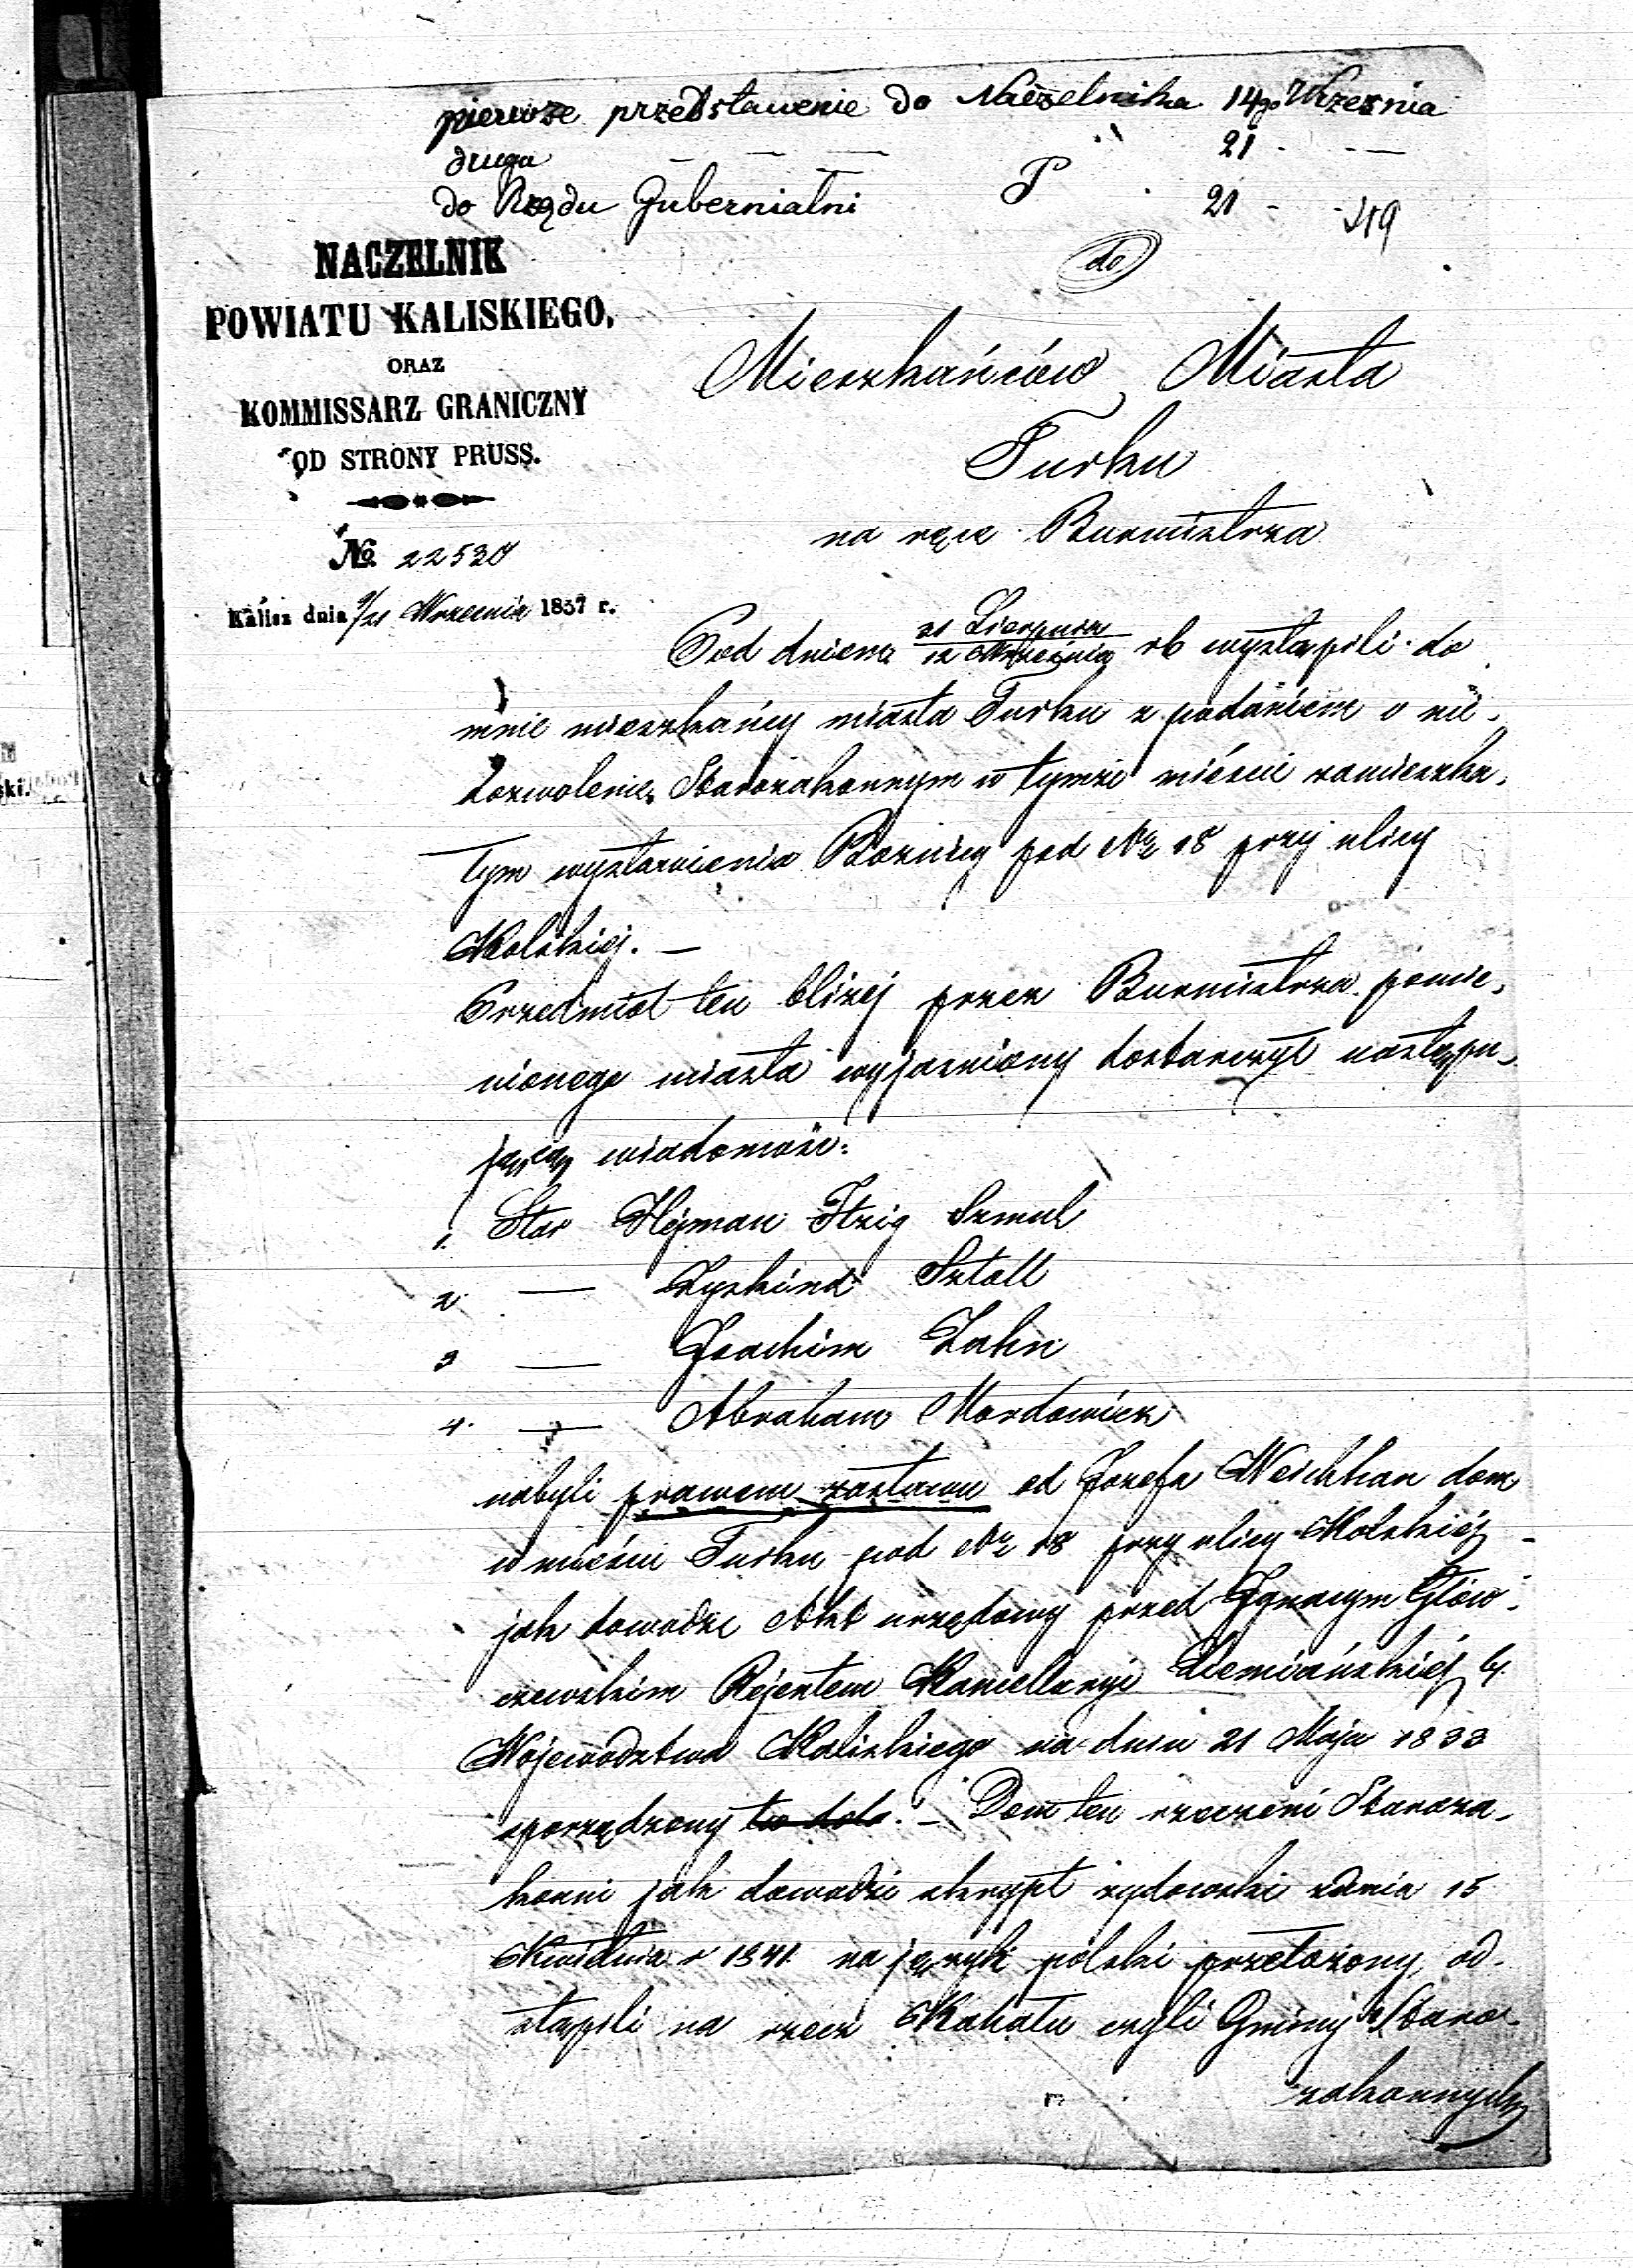 pierwsze przedstawienie do Naczelnika 14go Września
druga — — — " 21 - - —
do Rządu Gubernialni P 21 - -
NACZELNIK
POWIATU KALISKIEGO,
ORAZ
KOMMISSARZ GRANICZNY
OD STRONY PRUSS.
№ 22530
Kalisz dnia 9/21 Września 1857 r.
do
Mieszkańców Miasta
Turku
na ręce Burmistrza
Pod dniem 31 Sierpnia / 12 Września rb wystąpili do
mnie mieszkańcy miasta Turku z podaniem o nie-
dozwolenie Starozakonnym w tymże mieście zamieszka-
łym wystawienia Bożnicy pod Nr 18 przy ulicy
Kolskiej. —
Przedmiot ten bliżej przez Burmistrza pomie-
nionego miasta wyjaśniony dostarczył następu-
jącą wiadomość:
1. Star Hejman Itzig Szmul
2. — Zyskind Sztall
3 — Joachim Zahn
4. — Abraham Mordowicz
nabyli prawem zastawu od Józefa Weichhan dom
w mieście Turku pod Nr 18 przy ulicy Kolskiéj -
jak dowodzi Akt urzędowy przed Ignacym Głów-
czewskim Rejentem Kancellaryi Ziemiańskiéj b.
Województwa Kaliskiego na dniu 21 Maja 1833
sporządzony. — Dom ten rzeczeni Staroza-
konni jak dowodzi skrypt żydowski z dnia 15
Kwietnia r 1841 na język polski przełożony, od-
stąpili na rzecz Kahału czyli Gminy Staro-
zakonnych